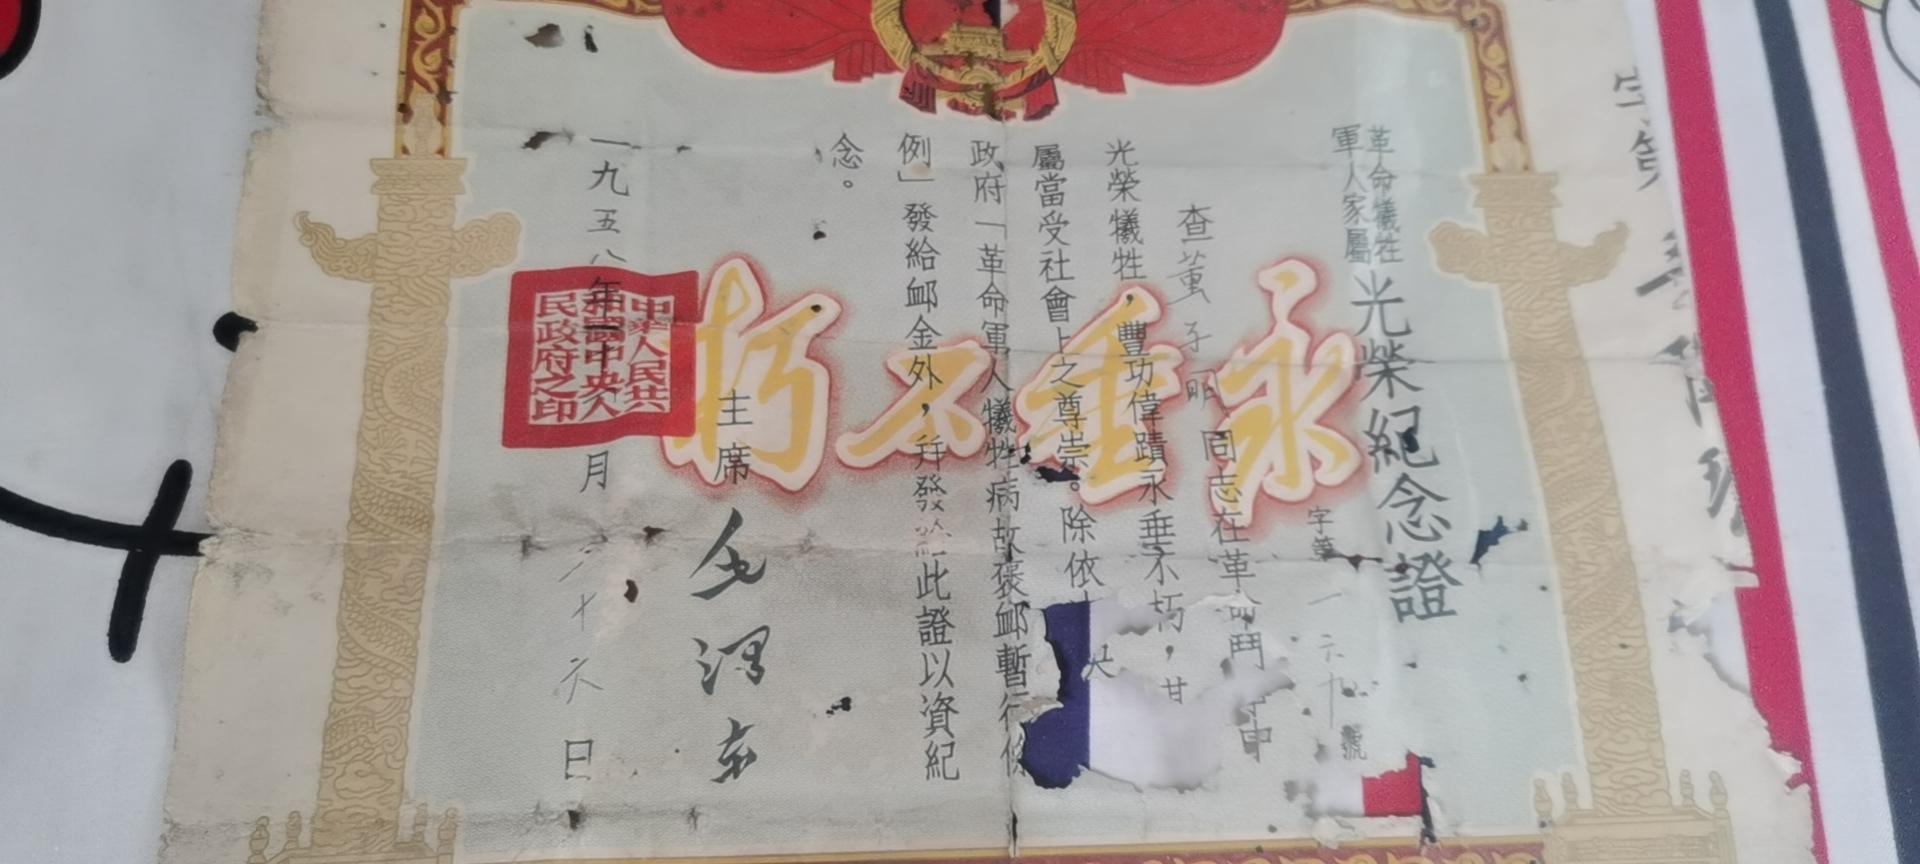 革命犧牲
軍人家屬
光榮紀念證
字第一六九號
查董子明同志在革命鬥爭中
光榮犧牲，豐功偉蹟永垂不朽，其
屬當受社會上之尊崇。除依
央
政府「革命軍人犧牲病故褒卹暫行條
例」發給卹金外，并發給此證以資紀
念。
主席 毛澤東
一九五八年 月 十六日
永垂不朽
中華人民共
和國中央人
民政府之印
字第